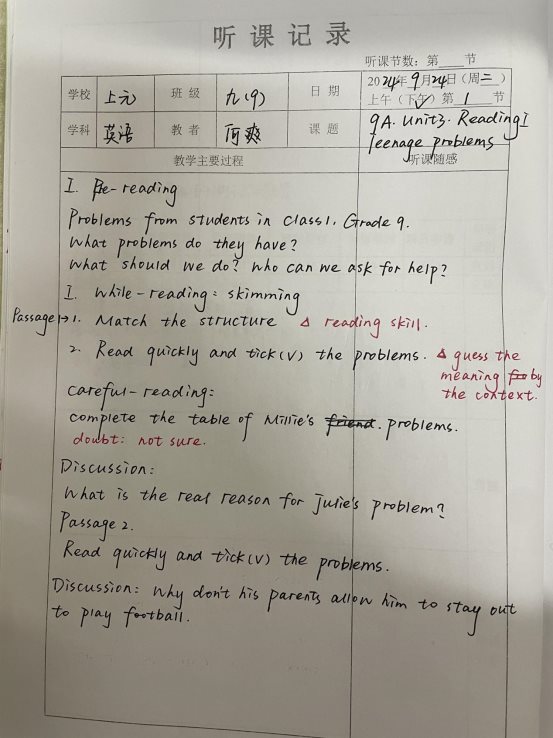 听课记录
听课节数：第____节
学校 上元 班级 九(9) 日期 2024年9月24日（周二）
上午（下午）第1节
学科 英语 教者 何爽 课题 9A. Unit3. Reading I
Teenage problems
教学主要过程 听课随感
I. Pre-reading
Problems from students in class1, Grade 9.
What problems do they have?
What should we do? Who can we ask for help?
I. While-reading: skimming
Passage 1→1. Match the structure △ reading skill.
2. Read quickly and tick(√) the problems. △ guess the
meaning by
the context.
Careful-reading:
complete the table of Millie's friend. problems.
doubt: not sure.
Discussion:
What is the real reason for Julie's problem?
Passage 2.
Read quickly and tick(√) the problems.
Discussion: Why don't his parents allow him to stay out
to play football.